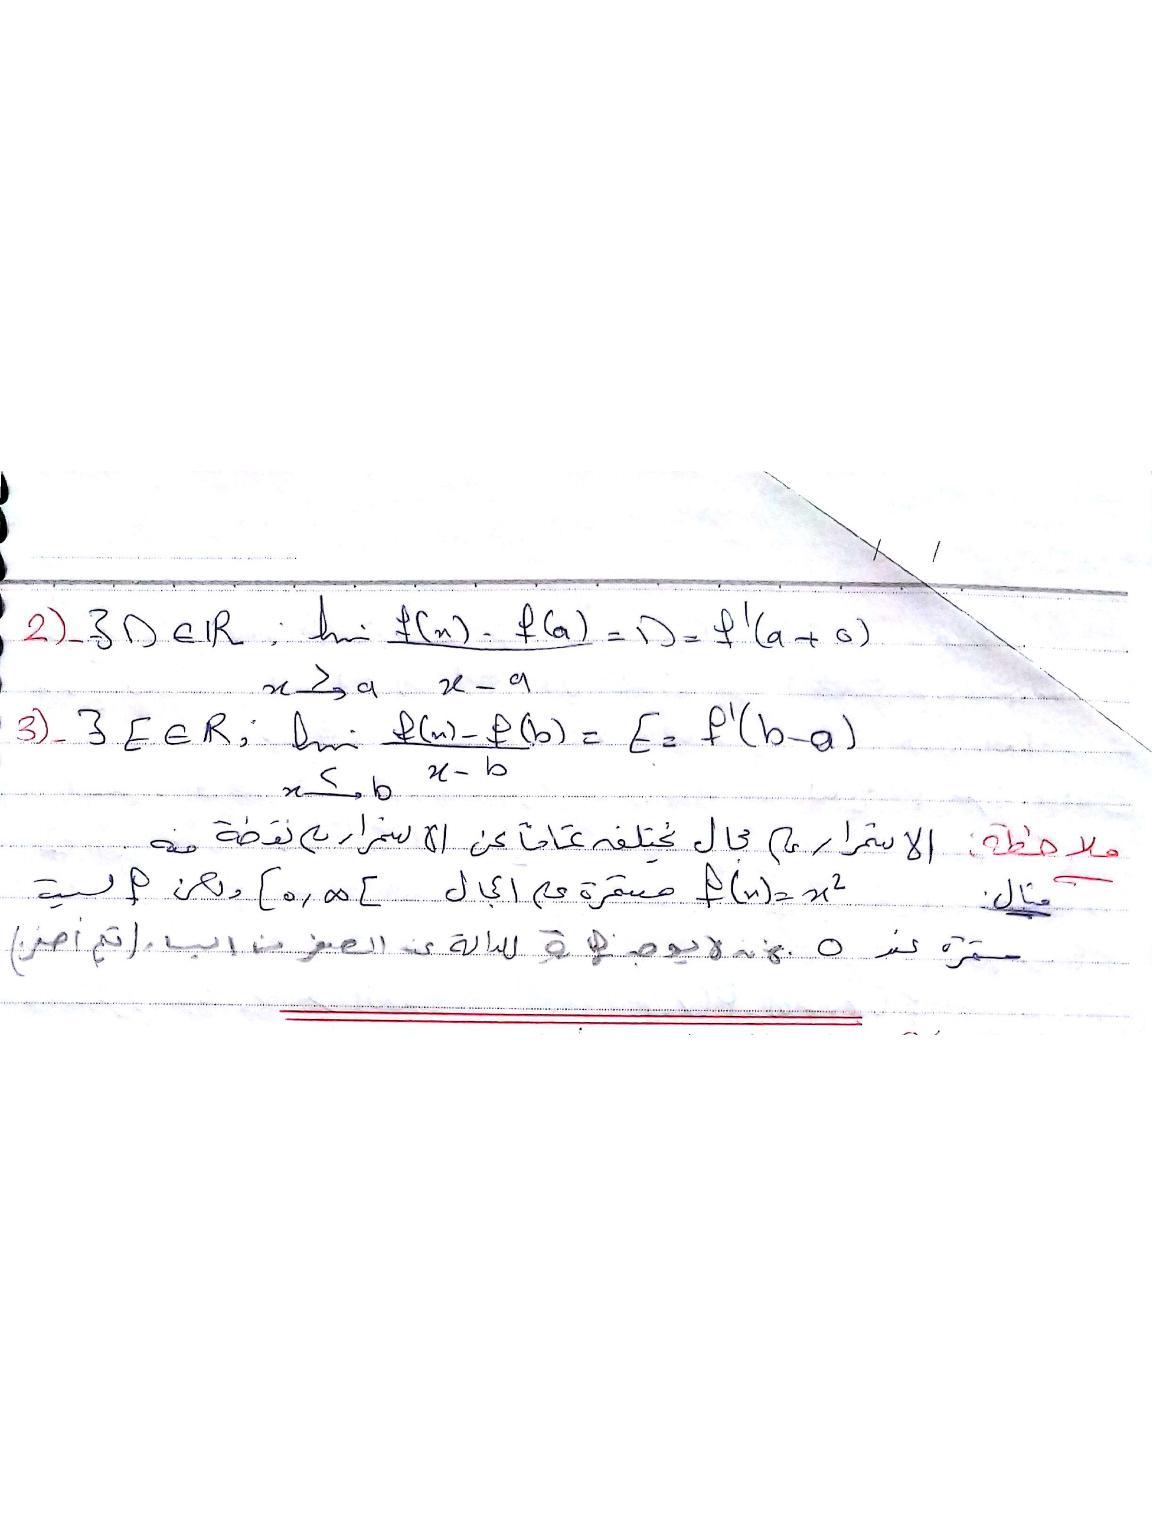 / /
2)- ∃ D ∈ ℝ ; lim f(x) - f(a) = D = f'(a+0)
x >→ a x - a
3)- ∃ E ∈ ℝ ; lim f(x) - f(b) = E = f'(b-a)
x - b
x <→ b
ملاحظة: الاستمرار على مجال يختلف تماما عن الاستمرار على نقطة منه
مثال: f(x) = x² مستمرة على المجال [0, ∞[ ولكن f ليست
مستمرة عند 0 لأنه لا يوجد للدالة عند الصفر من اليسار.